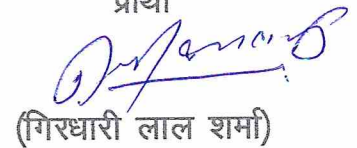 प्रार्थी
(गिरधारी लाल शर्मा)